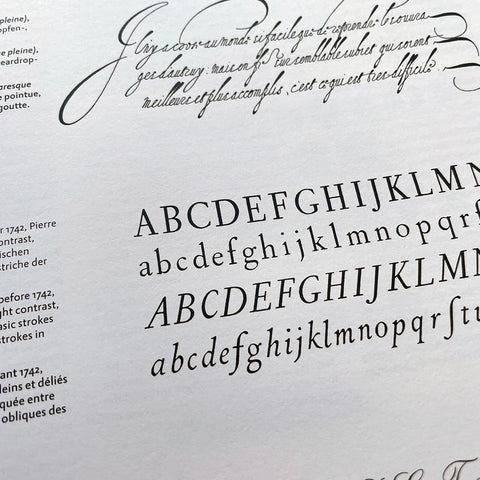 pleine),
opfen-,
e pleine),
eardrop-
aresque
e pointue,
goutte.
Il n'y a
au monde si facile que de reprendre
meilleures et plus accomplis, c'est ce qui est tres difficile.
r 1742, Pierre
ontrast,
ischen
striche der
before 1742,
ght contrast,
asic strokes
strokes in
ant 1742,
leins et déliés
quée entre
obliques des
ABCDEFGHIJKLMN
abcdefghijklmnopqrſ
ABCDEFGHIJKLMN
abcdefghijklmnopqrſtu